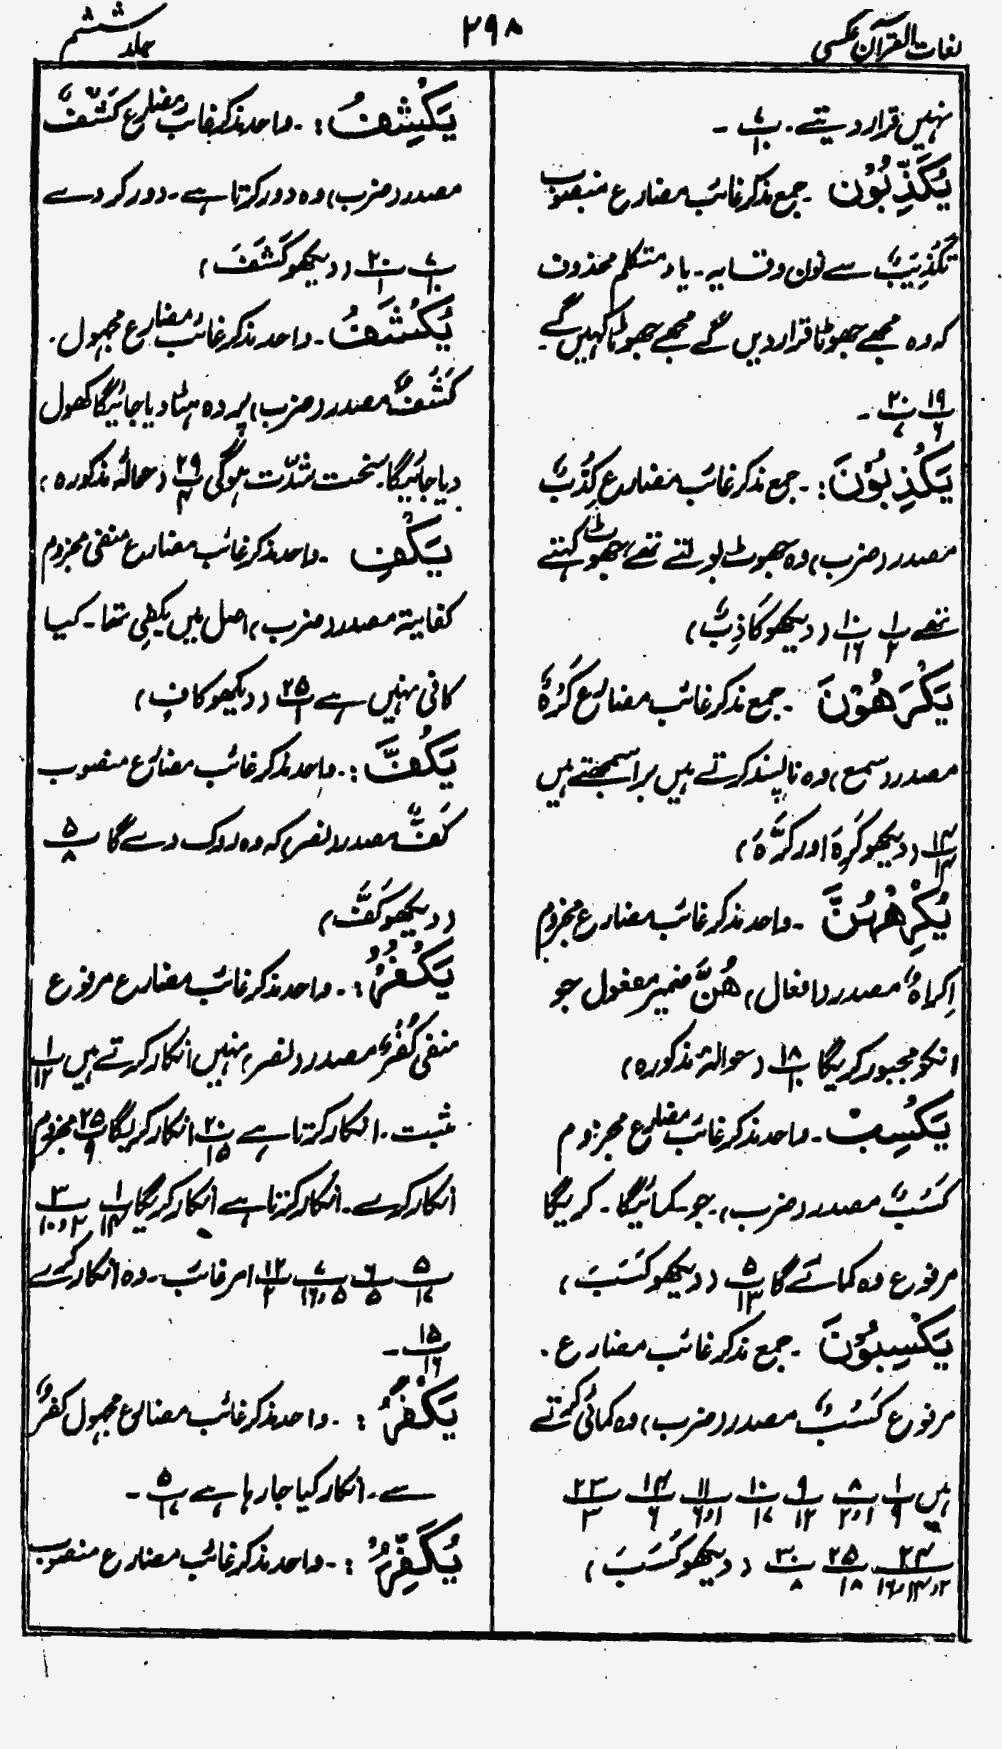 لغات القرآن عکسی
۲۹۸
جلد ششم
نہیں قرار دیتے۔ پ ۷/۱۰ ۔
یُکَذِّبُوْنِ ۔ جمع مذکر غائب مضارع منصوب
تکذیبٌ سے نون وقایہ۔ یاء متکلم محذوف
کہ وہ مجھے جھوٹا قرار دیں گے مجھے جھوٹا کہیں گے
پ ۱۹/۶ پ ۲۰/۷ ۔
یَکْذِبُوْنَ :۔ جمع مذکر غائب مضارع کِذْبٌ
مصدر (ضرب) وہ جھوٹ بولتے تھے، جھوٹ کہتے
تھے پ ۱/۲ پ ۱۰/۱۶ (دیکھو کَاذِبٌ)
یَکْرَھُوْنَ ۔ جمع مذکر غائب مضارع کَرْہٌ
مصدر (سمع) وہ ناپسند کرتے ہیں برا سمجھتے ہیں
پ ۱۴/۱۳ (دیکھو کَرِہَ اور کَرَّہَ)
یُکْرِھْھُنَّ ۔ واحد مذکر غائب مضارع مجزوم
اِکراہٌ مصدر (افعال) ھُنَّ ضمیر مفعول جو
انکو مجبور کریگا پ ۱۸/۱۰ (حوالہ مذکورہ)
یَکْسِبْ ۔ واحد مذکر غائب مضارع مجزوم
کَسْبٌ مصدر (ضرب)۔ جو کمائیگا۔ کریگا
مرفوع وہ کمائے گا پ ۵/۱۳ (دیکھو کَسَبَ)
یَکْسِبُوْنَ ۔ جمع مذکر غائب مضارع ۔
مرفوع کَسْبٌ مصدر (ضرب) وہ کمائی کرتے
ہیں پ ۱/۹ پ ۸/۱و۲ پ ۹/۱۲ پ ۱۰/۱۷ پ ۱۱/۱و۶ پ ۱۴/۶ پ ۲۳/۳
پ ۲۴/۲و۱۴و۱۶ پ ۲۵/۱۸ پ ۳۰/۸ (دیکھو کَسَبَ)
یَکْشِفُ :۔ واحد مذکر غائب مضارع کَشْفٌ
مصدر (ضرب) وہ دور کرتا ہے۔ دور کر دے
پ ۷/۱۰ پ ۲۰/۱ (دیکھو کَشَفَ)
یُکْشَفُ ۔ واحد مذکر غائب مضارع مجہول۔
کَشْفٌ مصدر (ضرب) پردہ ہٹا دیا جائیگا کھول
دیا جائیگا۔ سخت شدّت ہوگی پ ۲۹/۴ (حوالہ مذکورہ)
یَکْفِ ۔ واحد مذکر غائب مضارع منفی مجزوم
کفایۃ مصدر (ضرب) اصل میں یکفی تھا۔ کیا
کافی نہیں ہے پ ۲۵/۱ (دیکھو کافٍ)
یَکُفَّ :۔ واحد مذکر غائب مضارع منصوب
کَفٌّ مصدر (نصر) کہ وہ روک دے گا پ ۵/۸
(دیکھو کَفَّ)
یَکْفُرُ :۔ واحد مذکر غائب مضارع مرفوع
منفی کُفْرٌ مصدر (نصر) نہیں انکار کرتے ہیں پ ۱/۱۲
مثبت۔ انکار کرتا ہے پ ۲۰/۱۵ انکار کریگا پ ۲۵/۹ مجزوم
انکار کرے۔ انکار کرتا ہے انکار کریگا پ ۱/۱۴ پ ۳/۲و۱۰
پ ۵/۱۷ پ ۶/۵ پ ۷/۵و۱۶ پ ۱۲/۲ امر غائب۔ وہ انکار کرے
پ ۱۵/۱۶ ۔
یُکْفَرُ :۔ واحد مذکر غائب مضارع مجہول کفرٌ
سے۔ انکار کیا جا رہا ہے پ ۵/۱۷ ۔
یُکَفِّرُ :۔ واحد مذکر غائب مضارع منصوب